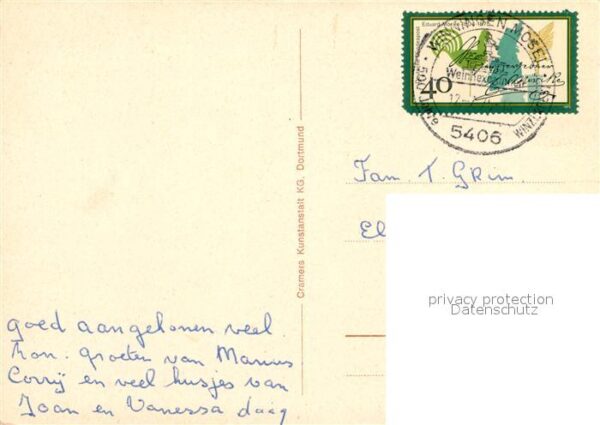 Eduard Mörike
40
WINNINGEN MOSEL
5406
Cramers Kunstanstalt KG. Dortmund
Fam. T. Grim.
El
privacy protection
Datenschutz
goed aangekomen veel
hon. groeten van Marius
Corrij en veel kusjes van
Joan en Vanessa daag